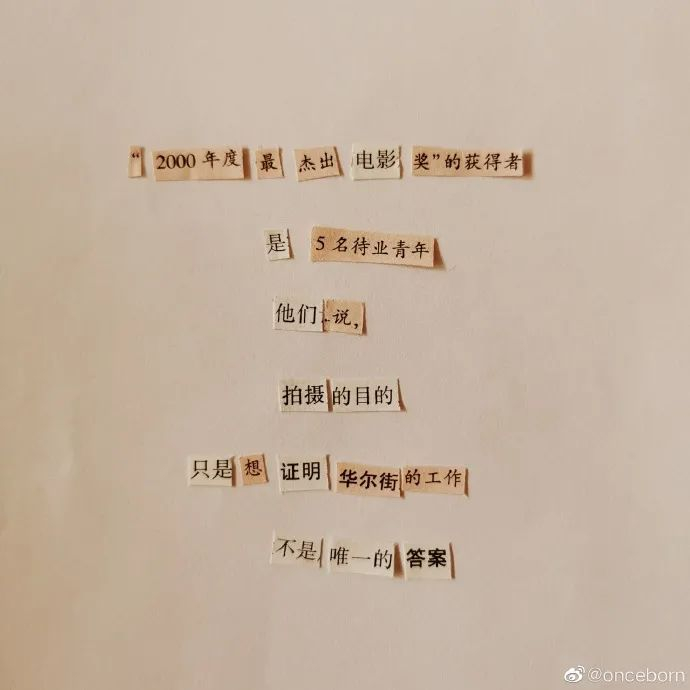 “2000年度最杰出电影奖”的获得者
是5名待业青年
他们说，
拍摄的目的
只是想证明华尔街的工作
不是唯一的答案
@onceborn